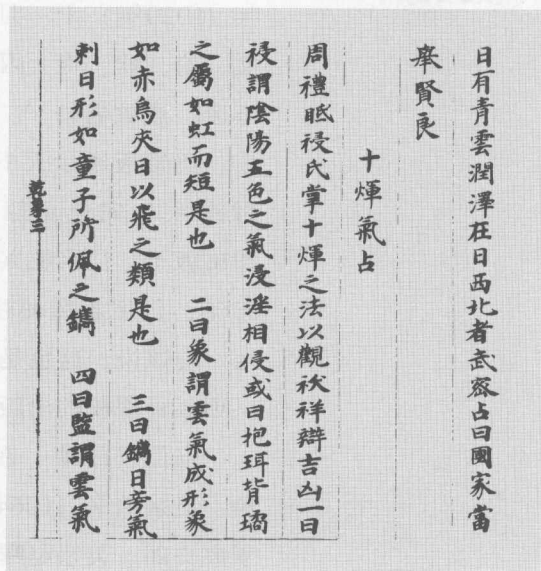 日有青雲潤澤在日西北者武密占曰國家當
舉賢良
十煇氣占
周禮眡祲氏掌十煇之法以觀祅祥辯吉凶一曰
祲謂陰陽五色之氣浸淫相侵或曰抱珥背璚
之屬如虹而短是也 二曰象謂雲氣成形象
如赤烏夾日以飛之類是也 三曰鑴日旁氣
刺日形如童子所佩之鑴 四曰監謂雲氣